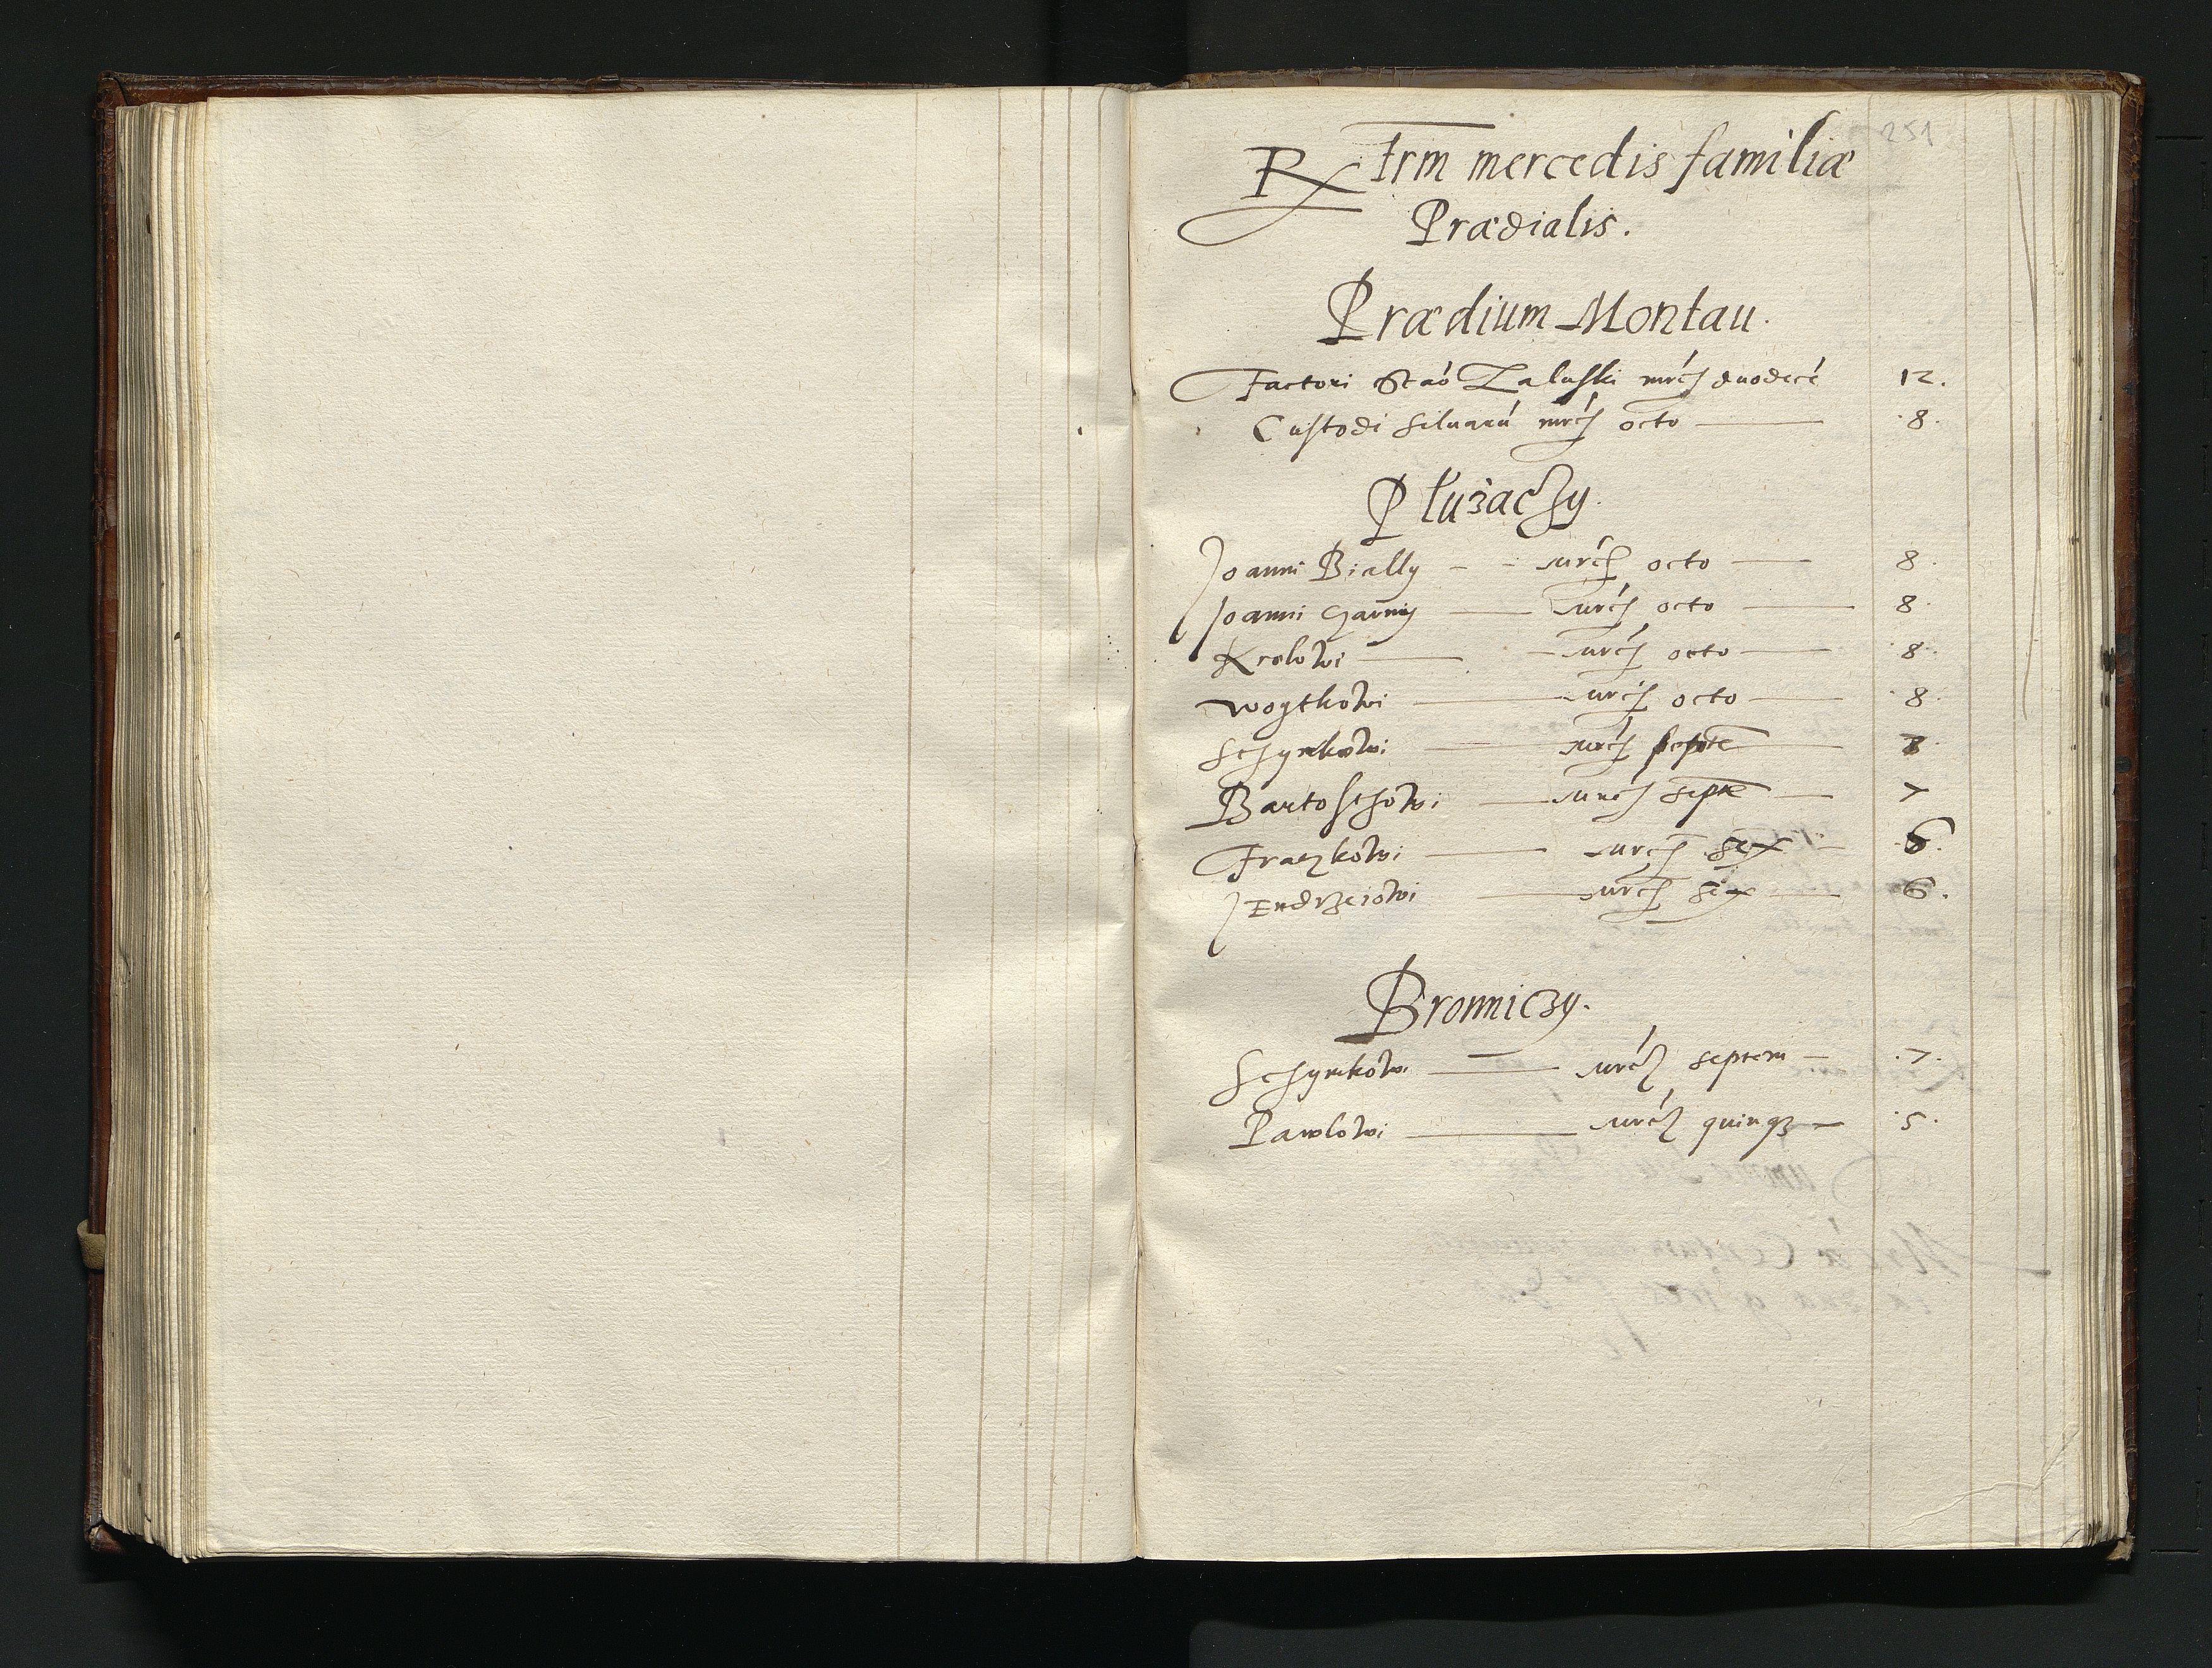 251
Rx Irm mercedis familiæ
Prædialis.
Prædium Montau.
Factori Stao Zaluski mrcs duodecē 12.
Custodi siluarū mrcs octo 8.
Plużaczy.
Joanni Bially mrcs octo 8.
Joanni Czarny mrcs octo 8.
Krolowi mrcs octo 8.
Woytkowi mrcs octo 8.
Schymkowi mrcs septē
Bartoschowi mrcs septē 7
Fraczkowi mrcs sex 6.
Jendrzeiowi mrcs sex 6.
Bronniczy.
Schymkowi mrcs septem 7.
Pawlowi mrcs quinqz 5.